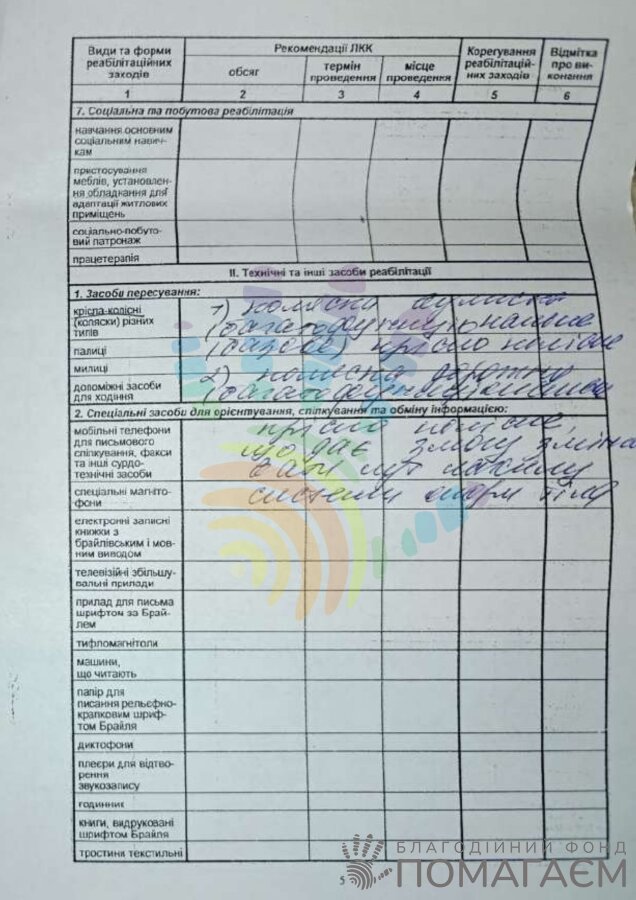 Види та форми реабілітаційних заходів
Рекомендації ЛКК
Корегування реабілітацій-них заходів
Відмітка про ви-конання
обсяг
термін проведення
місце проведення
1 2 3 4 5 6
7. Соціальна та побутова реабілітація
навчання основним
соціальним навич-
кам
пристосування
меблів, установлен-
ня обладкання для
адаптації житлових
приміщень
соціально-побуто-
вий патронаж
працетерапія
II. Технічні та інші засоби реабілітації
1. Засоби пересування:
крісла-колісні
(коляски) різних
типів
1) коляска
(багатофункціональне
палиці
(базове) крісло колісне
милиці
2) коляска дорожня
допоміжні засоби
для ходіння
(багатофункціональне
2. Спеціальні засоби для орієнтування, спілкування та обміну інформацією:
мобільні телефони
для письмового
спілкування, факси
та інші сурдо-
технічні засоби
крісло колісне,
що дає змогу зміню
вати кут нахилу
спеціальні магніто-
фони
системи опори тіла
електронні записні
книжки з
брайлівським і мов-
ним виводом
телевізійні збільшу-
вальні прилади
прилад для письма
шрифтом за Брай-
лем
тифломагнітоли
машини,
що читають
папір для
писання рельєфно-
крапковим шриф-
том Брайля
диктофони
плеєри для відтво-
рення
звукозапису
годинник
книги, видруковані
шрифтом Брайля
тростини текстильні
5
БЛАГОДІЙНИЙ ФОНД
ПОМАГАЄМ